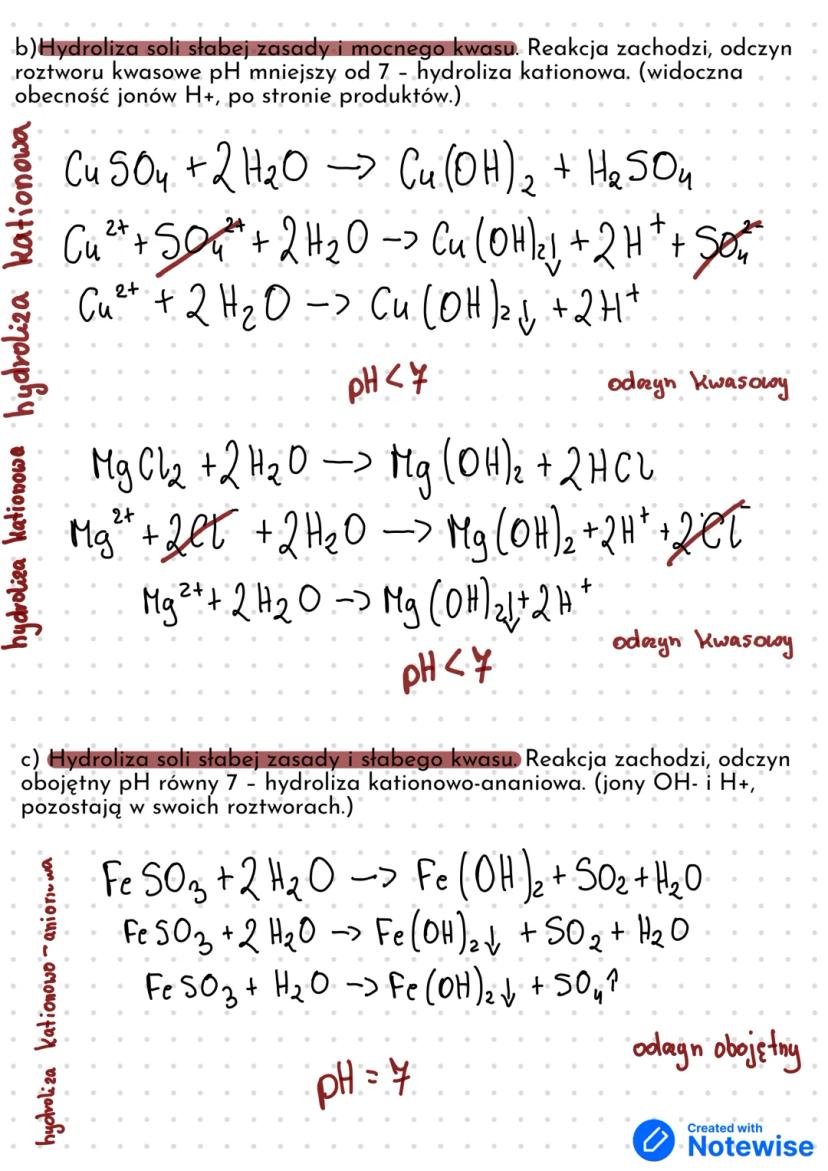 b)Hydroliza soli słabej zasady i mocnego kwasu. Reakcja zachodzi, odczyn
roztworu kwasowe pH mniejszy od 7 – hydroliza kationowa. (widoczna
obecność jonów H+, po stronie produktów.)
hydroliza kationowa
CuSO₄ + 2H₂O -> Cu(OH)₂ + H₂SO₄
Cu²⁺ + SO₄²⁺ + 2H₂O -> Cu(OH)₂↓ + 2H⁺ + SO₄²⁻
Cu²⁺ + 2H₂O -> Cu(OH)₂↓ + 2H⁺
pH < 7
odczyn kwasowy
hydroliza kationowe
MgCl₂ + 2H₂O -> Mg(OH)₂ + 2HCl
Mg²⁺ + 2Cl⁻ + 2H₂O -> Mg(OH)₂ + 2H⁺ + 2Cl⁻
Mg²⁺ + 2H₂O -> Mg(OH)₂↓ + 2H⁺
odczyn kwasowy
pH < 7
c) Hydroliza soli słabej zasady i słabego kwasu. Reakcja zachodzi, odczyn
obojętny pH równy 7 – hydroliza kationowo-ananiowa. (jony OH- i H+,
pozostają w swoich roztworach.)
hydroliza kationowo-anionowa
FeSO₃ + 2H₂O -> Fe(OH)₂ + SO₂ + H₂O
FeSO₃ + 2H₂O -> Fe(OH)₂↓ + SO₂ + H₂O
FeSO₃ + H₂O -> Fe(OH)₂↓ + SO₄↑
odczyn obojętny
pH = 7
Created with
Notewise